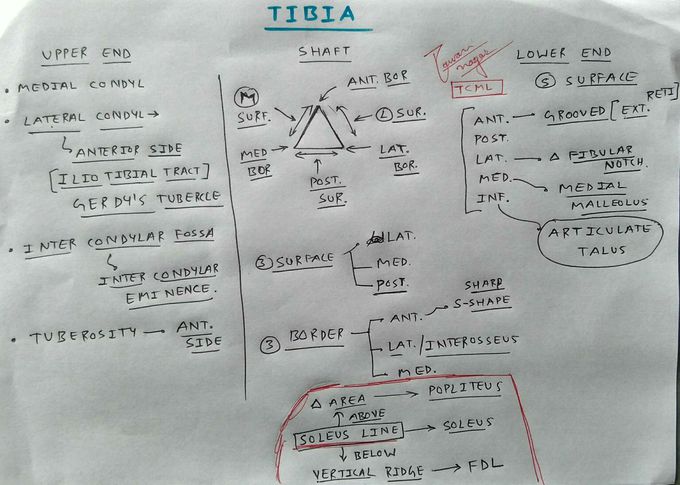 TIBIA
UPPER END
• MEDIAL CONDYL
• LATERAL CONDYL →
ANTERIOR SIDE
[ILIO TIBIAL TRACT]
GERDY'S TUBERCLE
• INTER CONDYLAR FOSSA
INTER CONDYLAR
EMINENCE.
• TUBEROSITY — ANT.
SIDE
SHAFT
ANT. BOR
M
SURF.
L SUR.
MED
BOR
LAT.
BOR.
POST.
SUR.
③ SURFACE
LAT.
MED.
POST.
③ BORDER
ANT.
SHARP
S-SHAPE
LAT./INTEROSSEUS
MED.
△ AREA → POPLITEUS
↑ ABOVE
SOLEUS LINE → SOLEUS
↓ BELOW
VERTICAL RIDGE → FDL
Pawan
nagar
TCML
LOWER END
⑤ SURFACE
ANT. → GROOVED [EXT. RETI]
POST.
LAT. → △ FIBULAR
NOTCH.
MED. → MEDIAL
MALLEOLUS
INF.
ARTICULATE
TALUS